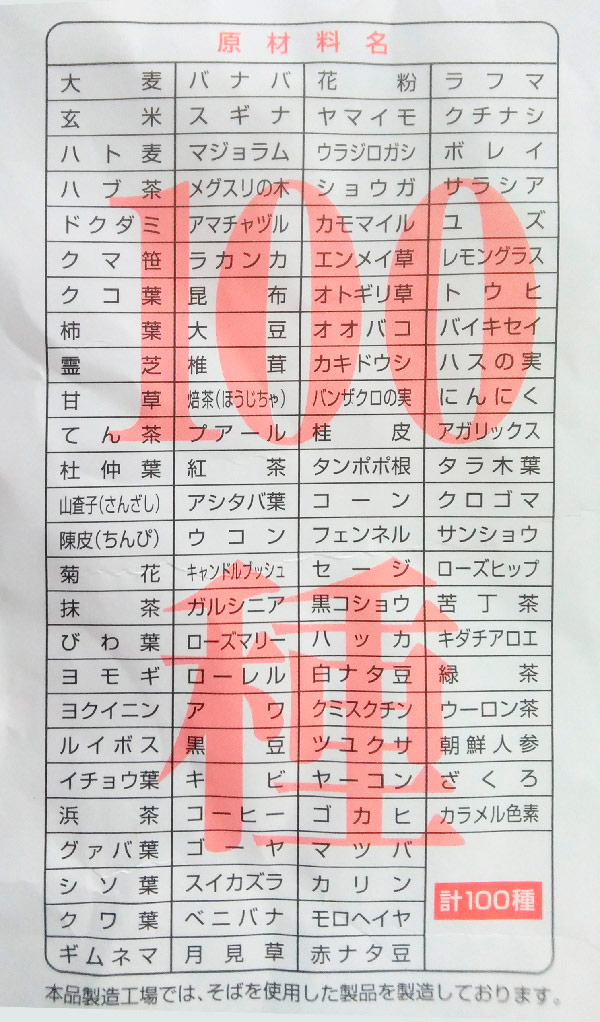 原材料名
大麦 バナバ 花粉 ラフマ
玄米 スギナ ヤマイモ クチナシ
ハト麦 マジョラム ウラジロガシ ボレイ
ハブ茶 メグスリの木 ショウガ サラシア
ドクダミ アマチャヅル カモマイル ユズ
クマ笹 ラカンカ エンメイ草 レモングラス
クコ葉 昆布 オトギリ草 トウヒ
柿葉 大豆 オオバコ バイキセイ
霊芝 椎茸 カキドウシ ハスの実
甘草 焙茶(ほうじちゃ) バンザクロの実 にんにく
てん茶 プアール 桂皮 アガリックス
杜仲葉 紅茶 タンポポ根 タラ木葉
山査子(さんざし) アシタバ葉 コーン クロゴマ
陳皮(ちんぴ) ウコン フェンネル サンショウ
菊花 キャンドルブッシュ セージ ローズヒップ
抹茶 ガルシニア 黒コショウ 苦丁茶
びわ葉 ローズマリー ハッカ キダチアロエ
ヨモギ ローレル 白ナタ豆 緑茶
ヨクイニン アワ クミスクチン ウーロン茶
ルイボス 黒豆 ツユクサ 朝鮮人参
イチョウ葉 キビ ヤーコン ざくろ
浜茶 コーヒー ゴカヒ カラメル色素
グァバ葉 ゴーヤ マツバ
シソ葉 スイカズラ カリン
クワ葉 ベニバナ モロヘイヤ
ギムネマ 月見草 赤ナタ豆
計100種
100
種
本品製造工場では、そばを使用した製品を製造しております。